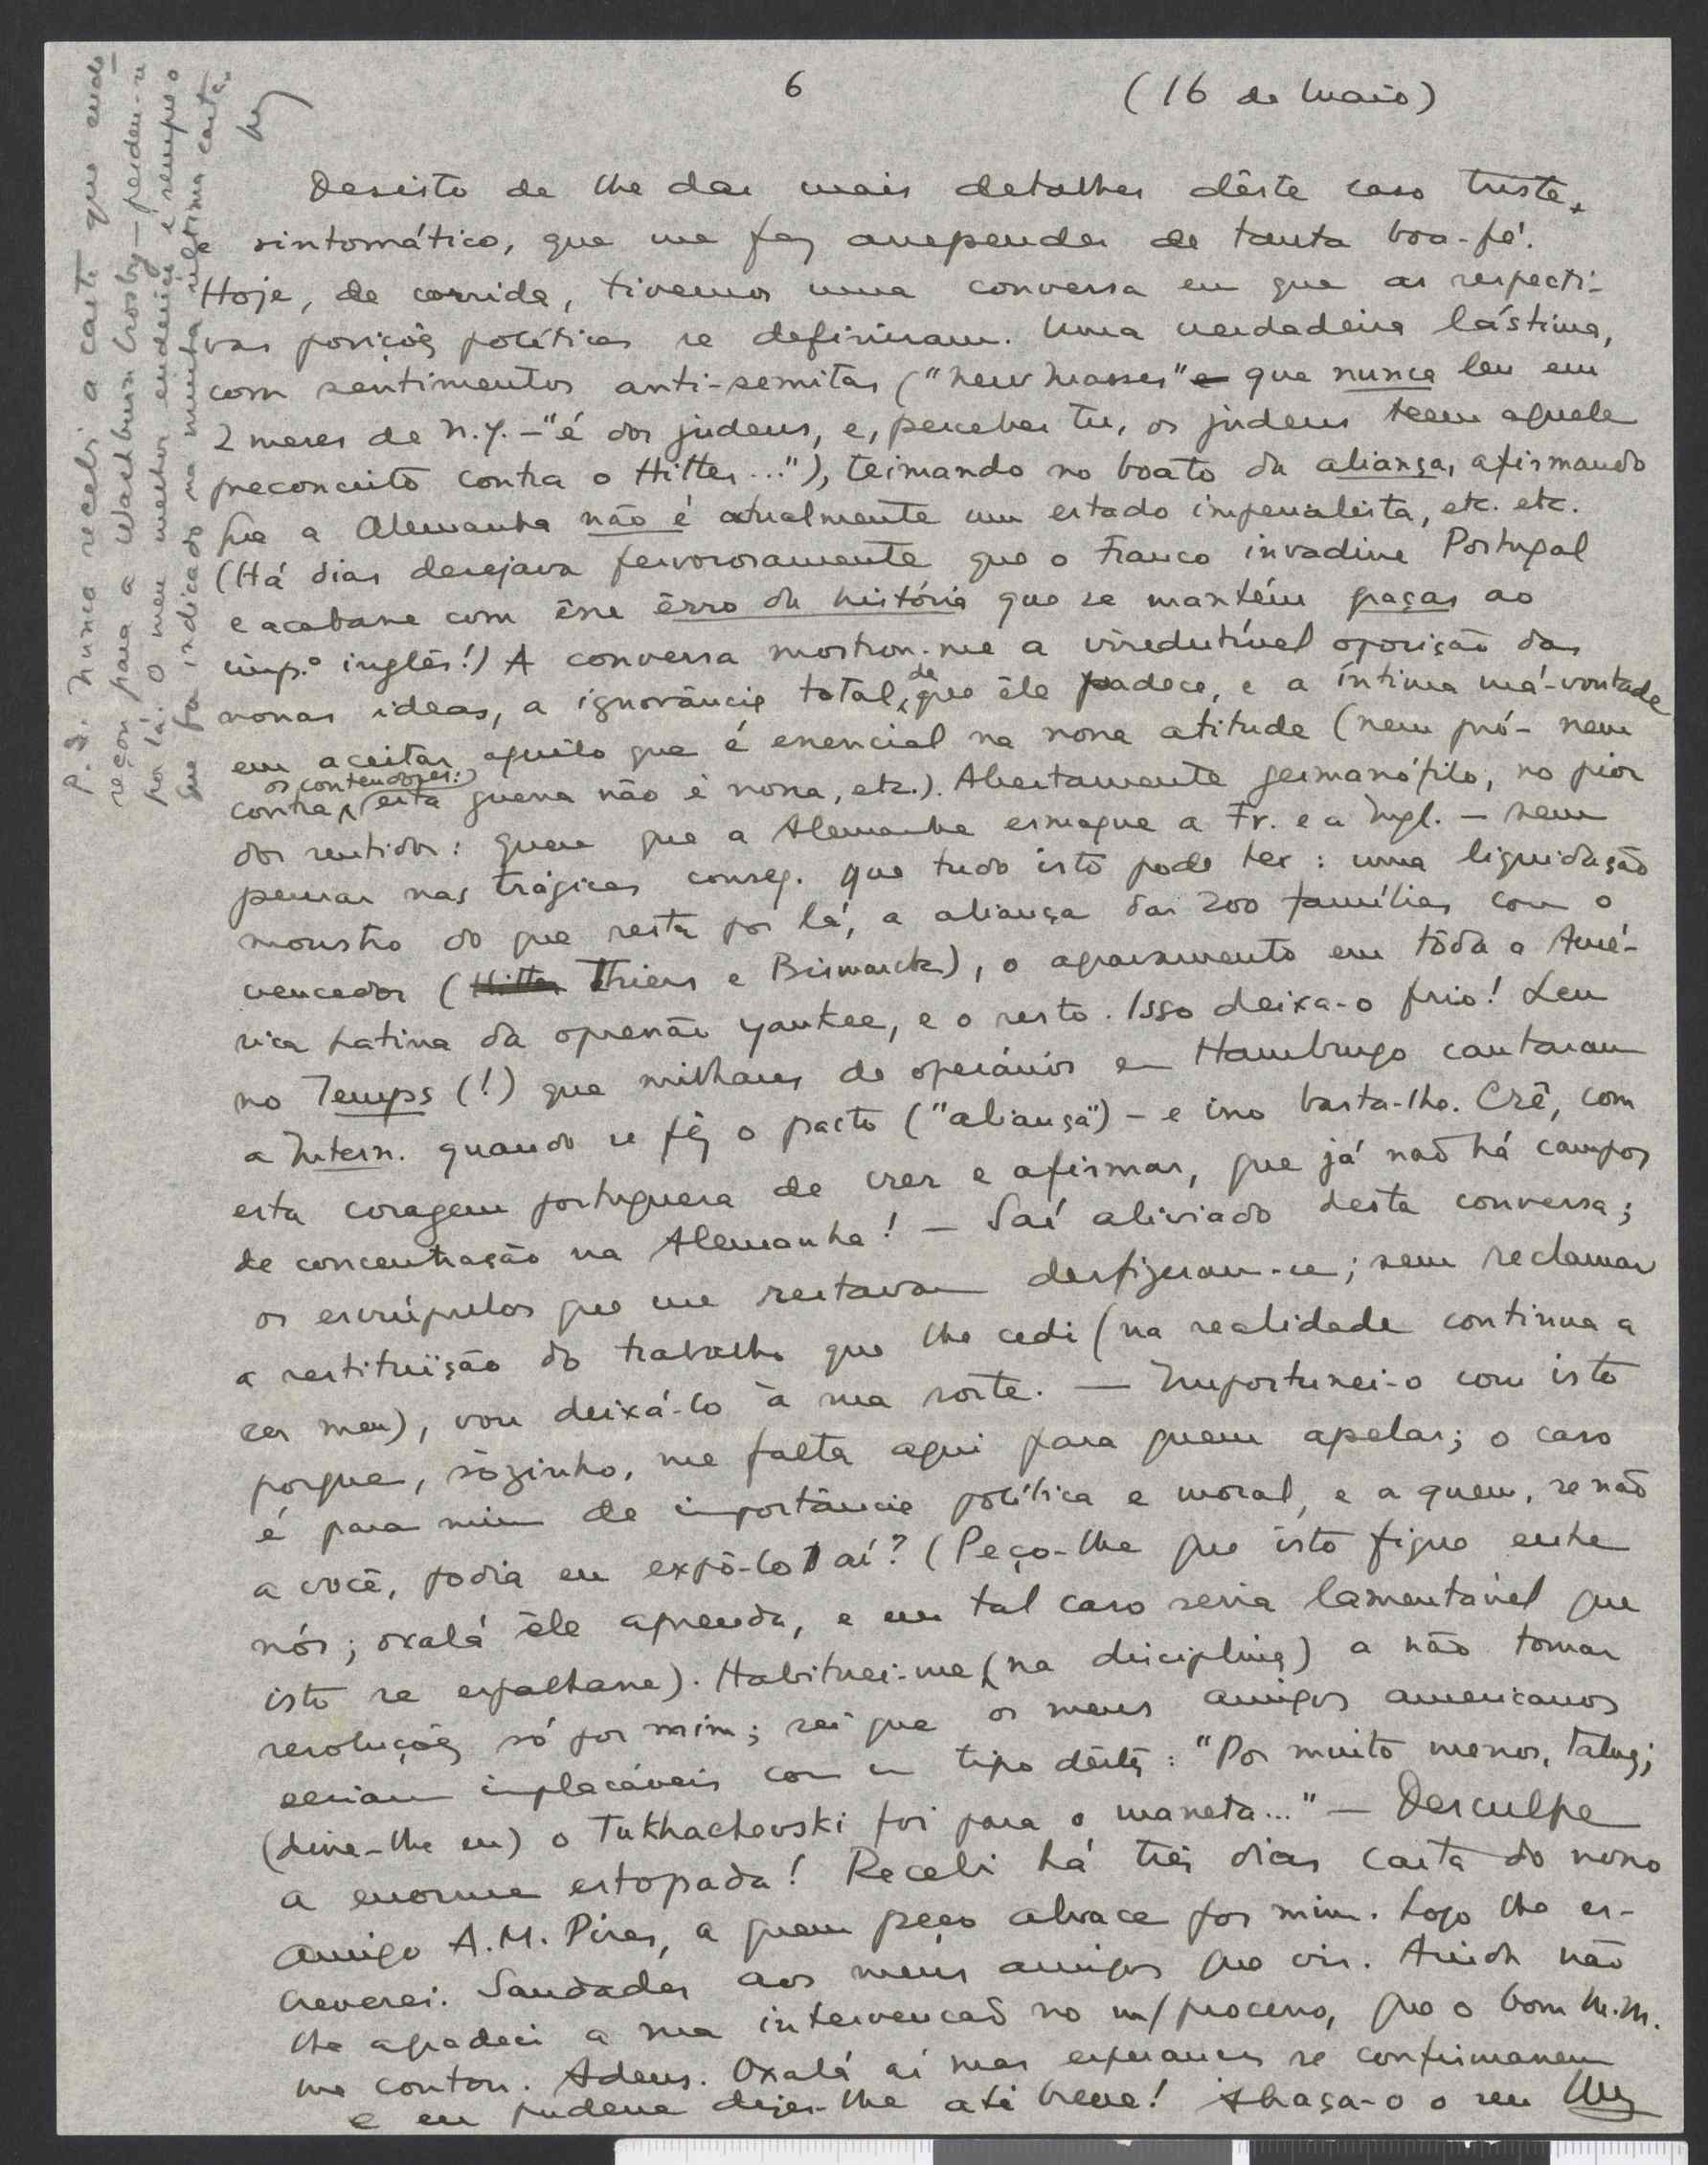 6
(16 de Maio)
Desisto de lhe dar mais detalhes dêste caso triste,
e sintomático, que me fez arrepender de tanta boa-fé.
Hoje, de corrida, tivemos uma conversa em que as respecti-
vas posições políticas se definiram. Uma verdadeira lástima,
com sentimentos anti-semitas ("New Masses" que nunca leu em
2 meses de N.Y. - "é dos judeus, e, percebes tu, os judeus teem aquele
preconceito contra o Hitler..."), teimando no boato da aliança, afirmando
que a Alemanha não é atualmente um estado imperialista, etc. etc.
(Há dias desejava fervorosamente que o Franco invadisse Portugal
e acabasse com êsse êrro da história que se mantém graças ao
imp.º inglês!) A conversa mostrou-me a irredutível oposição das
nossas ideas, a ignorância total, de que êle padece, e a íntima má-vontade
em aceitar aquilo que é essencial na nossa atitude (nem pró- nem
contra os contendores: esta guerra não é nossa, etc.). Abertamente germanófilo, no pior
dos sentidos: quere que a Alemanha esmague a Fr. e a Ingl. - sem
pensar nas trágicas conseq. que tudo isto pode ter: uma liquidação
monstro do que resta por lá, a aliança das 200 famílias com o
vencedor (Thiers e Bismarck), o agravamento em tôda a Amé-
rica Latina da opressão yankee, e o resto. Isso deixa-o frio! Leu
no Temps (!) que milhares de operários em Hamburgo cantaram
a Intern. quando se fêz o pacto ("aliança") - e isso basta-lhe. Crê, com
esta coragem portuguesa de crer e afirmar, que já não há campos
de concentração na Alemanha! - Saí aliviado desta conversa;
os escrúpulos que me restavam desfizeram-se; sem reclamar
a restituïção do trabalho que lhe cedi (na realidade continua a
ser meu), vou deixá-lo à sua sorte. — Importunei-o com isto
porque, sòzinho, me falta aqui para quem apelar; o caso
é para mim de importância política e moral, e a quem, se não
a você, podia eu expô-lo aí? (Peço-lhe que isto fique entre
nós; oxalá êle aprenda, e em tal caso seria lamentável que
isto se espalhasse). Habituei-me (na disciplina) a não tomar
resoluções só por mim; sei que os meus amigos americanos
seriam implacáveis com um tipo dêstes: "Por muito menos,
(disse-lhe eu) o Tukhachevski foi para o maneta..." — Desculpe
a enorme estopada! Recebi há três dias carta do nosso
amigo A.M. Pires, a quem peço abrace por mim. Logo lhe es-
creverei. Saudades aos meus amigos que vir. Ainda não
lhe agradeci a sua intervenção no m/ processo, que o bom M.M.
me contou. Adeus. Oxalá as suas esperanças se confirmassem
e eu pudesse dizer-lhe até breve! Abraça-o o seu
P.S. Nunca recebi a carta que ende-
reçou para a Washburn Crosby — perdeu-se
por lá. O meu melhor enderêço é sempre o
que foi indicado na minha última carta.